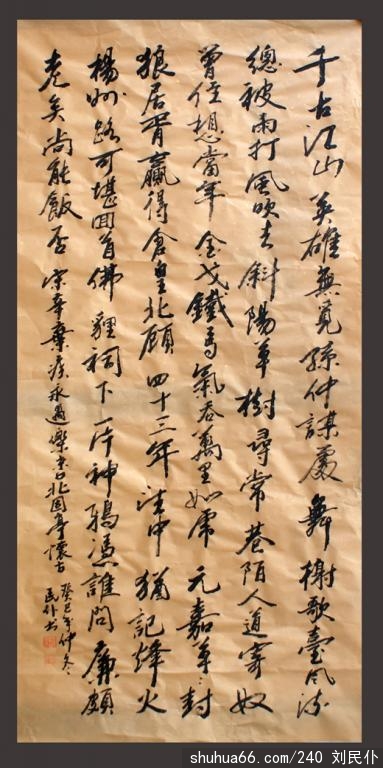 千古江山英雄無覓孫仲謀處舞榭歌臺風流
總被雨打風吹去斜陽草樹尋常巷陌人道寄奴
曾住想當年金戈鐵馬氣吞萬里如虎元嘉草々封
狼居胥贏得倉皇北顧四十三年望中猶記烽火
楊州路可堪回首佛貍祠下一片神鴉憑誰問廉頗
老矣尚能飯否宋辛棄疾永遇樂京口北固亭懷古
癸巳年仲冬
民仆書
shuhua66.com/240 刘民仆